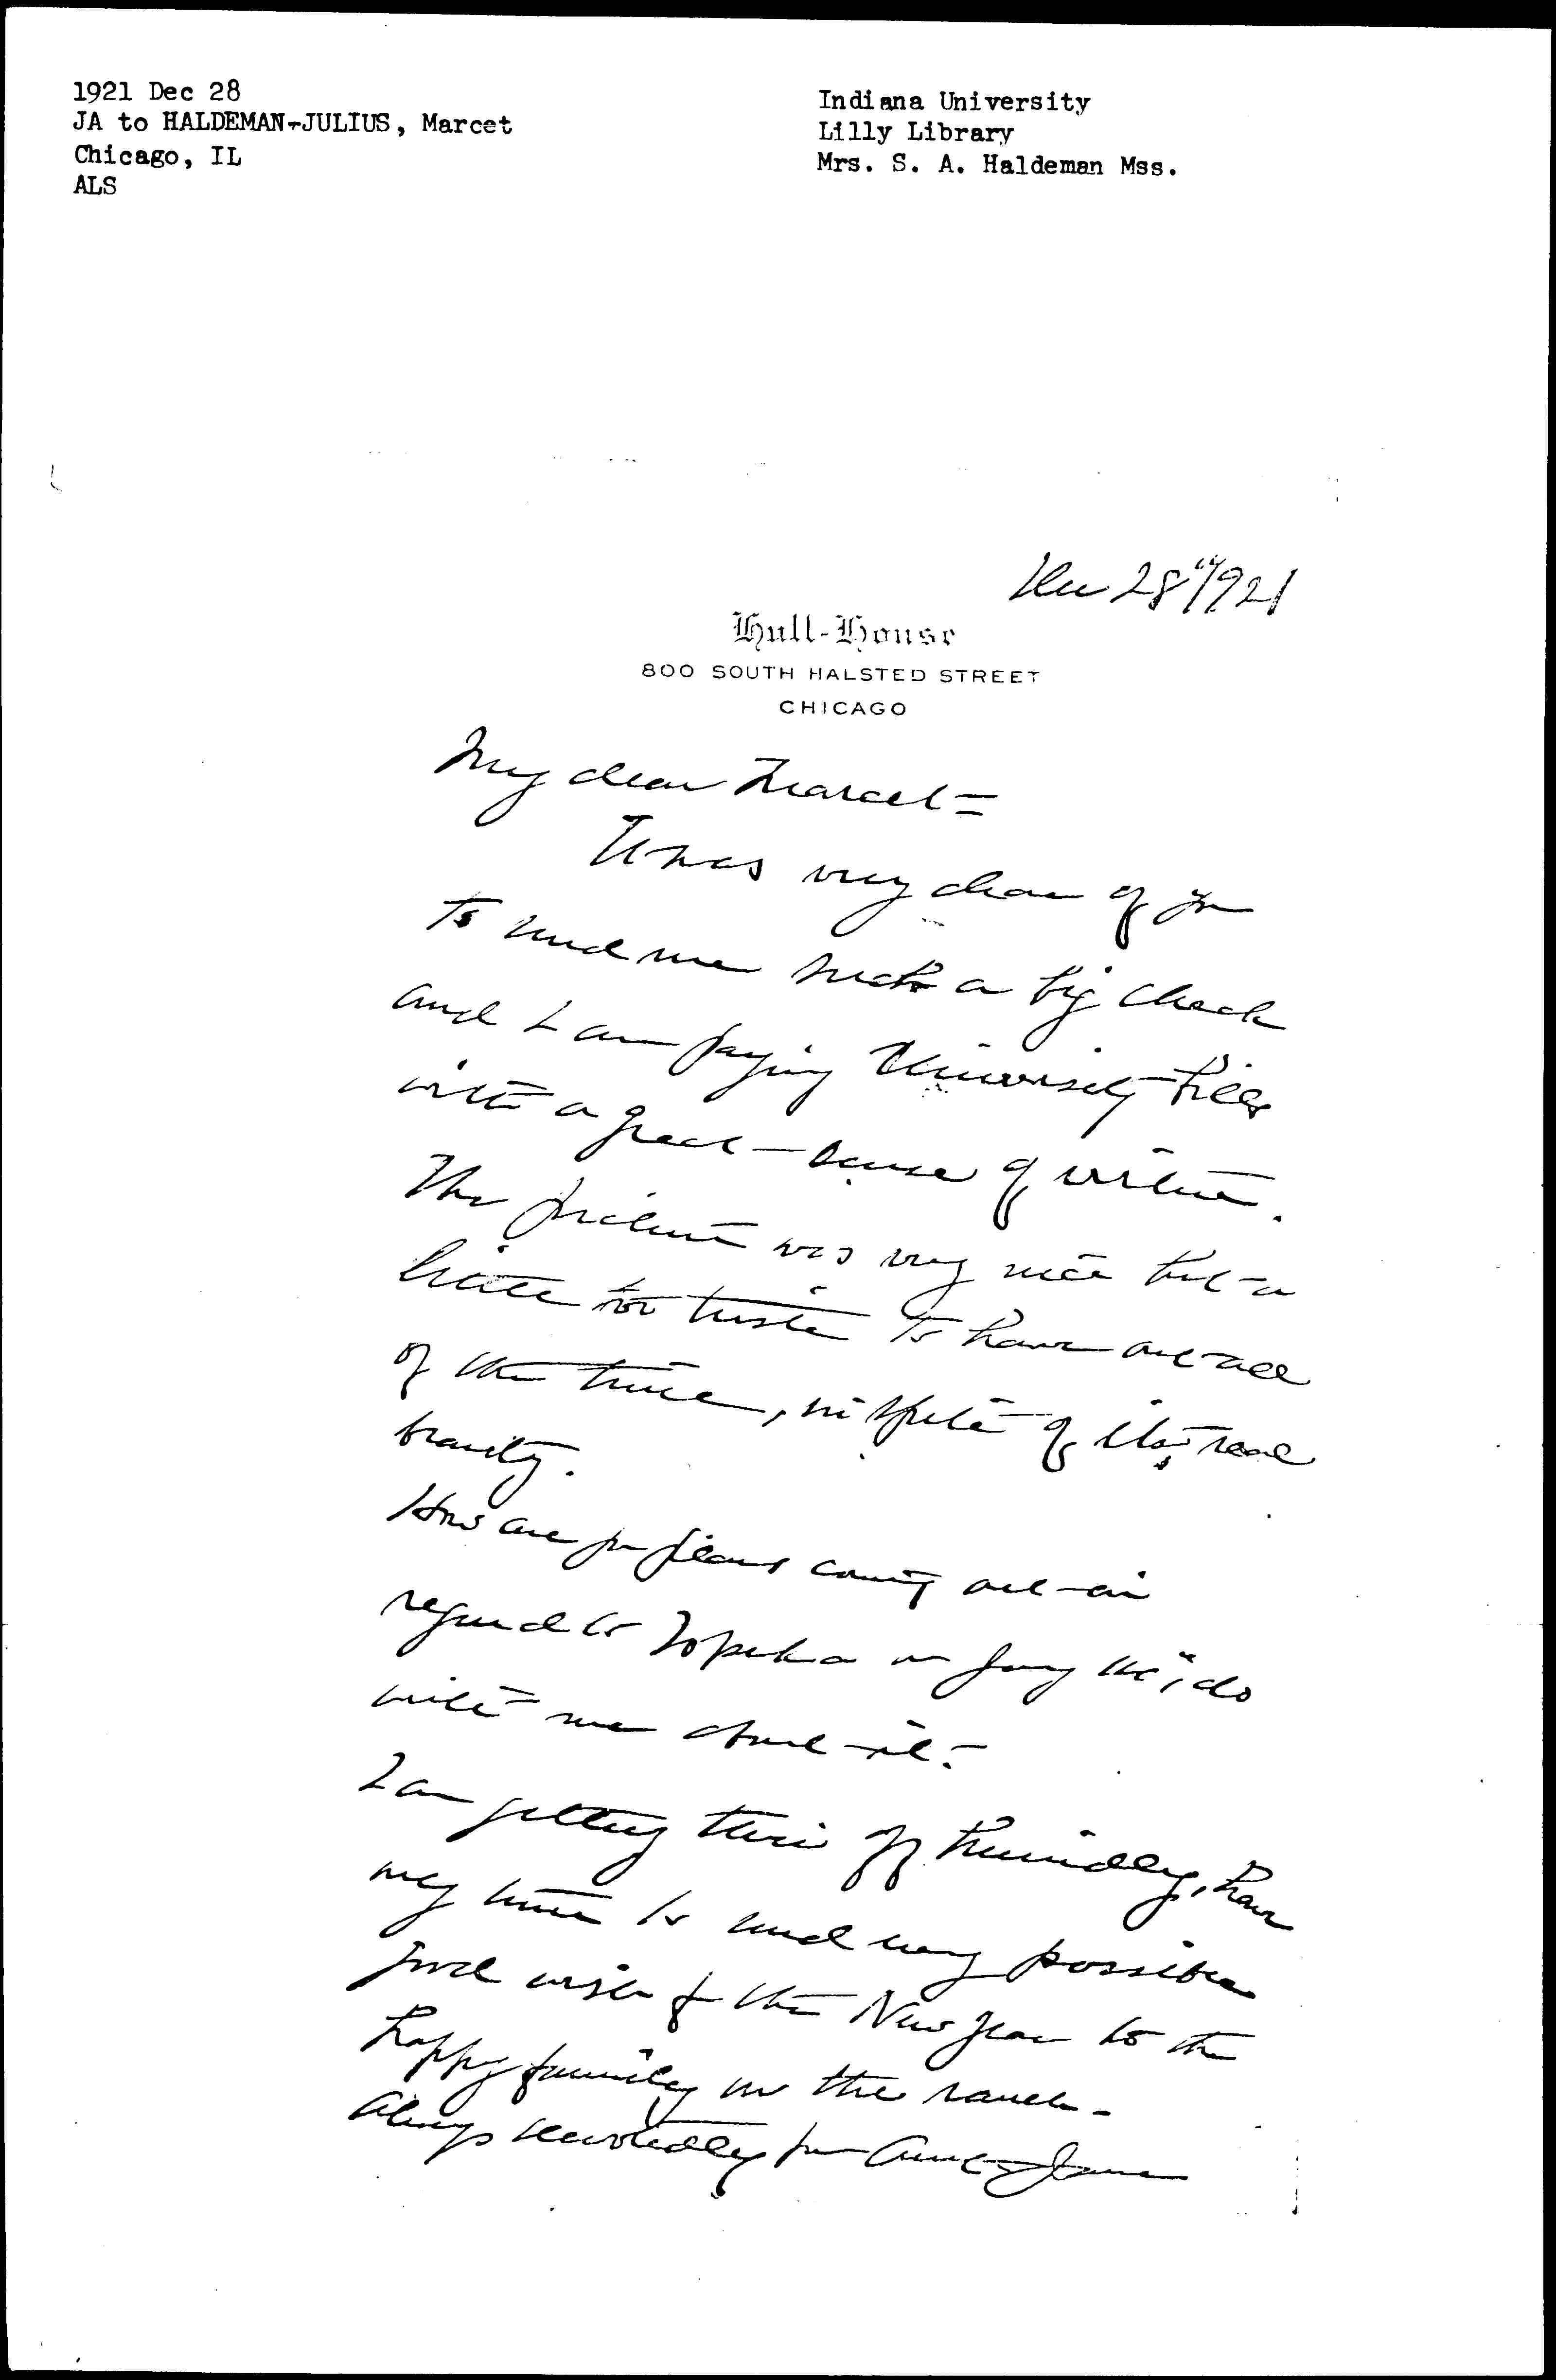 1921 Dec 28
JA to HALDEMAN-JULIUS, Marcet
Chicago, IL
ALS
Indiana University
Lilly Library
Mrs. S. A. Haldeman Mss.
Dec 28" 1921
Hull-House
800 SOUTH HALSTED STREET
CHICAGO
My dear Marcet =
It was very dear of you
to send me such a big check
and I am paying University bills
with a great sense of virtue.
The picture was very nice but a
little too triste to have out all
of the time, in spite of its real
beauty.
How are your plans coming out in
regard to Topeka or Jury etc; do
write me about it.
I am getting this off hurriedly, have
my time to send every possible
good wish for the New Year to the
happy family on the ranch.
Always devotedly your Aunt Jane